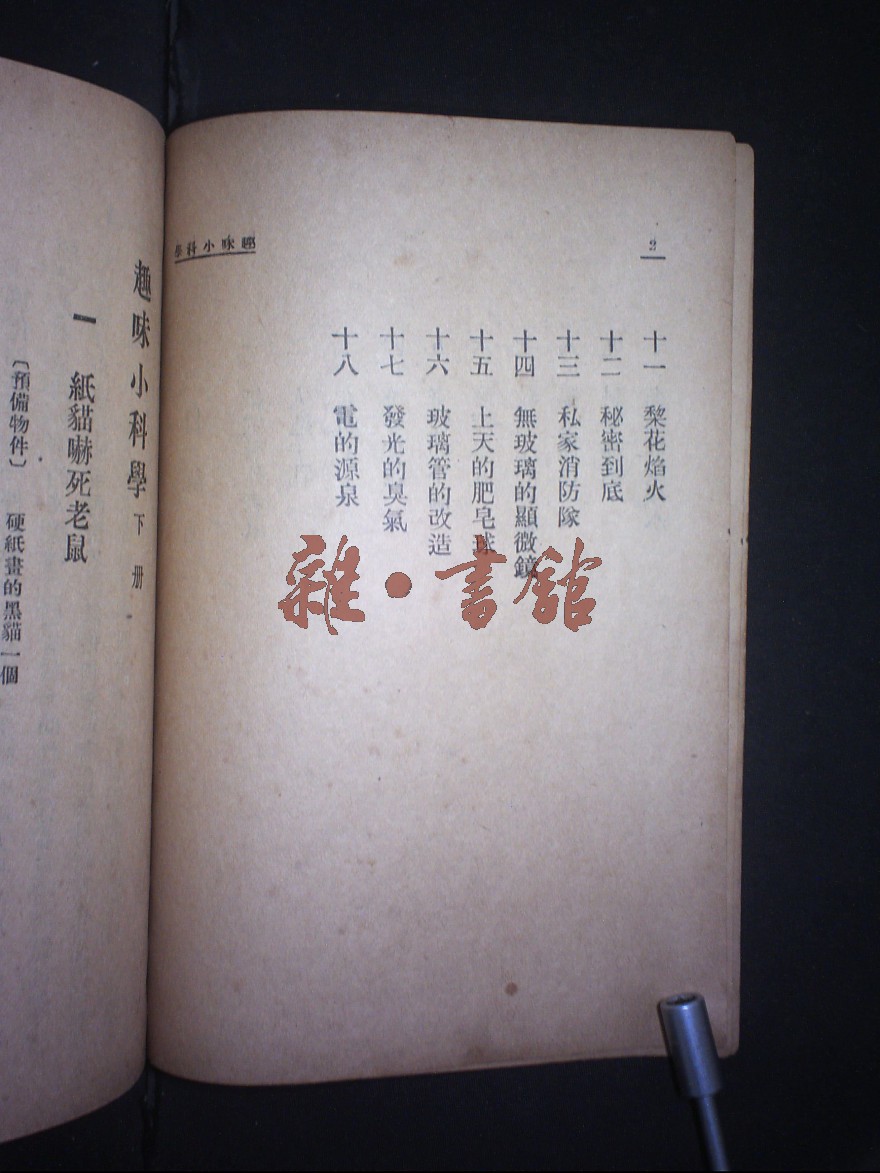 2
趣味小科學
十一 棃花焰火
十二 秘密到底
十三 私家消防隊
十四 無玻璃的顯微鏡
十五 上天的肥皂球
十六 玻璃管的改造
十七 發光的臭氣
十八 電的源泉
趣味小科學 下册
一 紙貓嚇死老鼠
〔預備物件〕 硬紙畫的黑貓一個
雜·書館